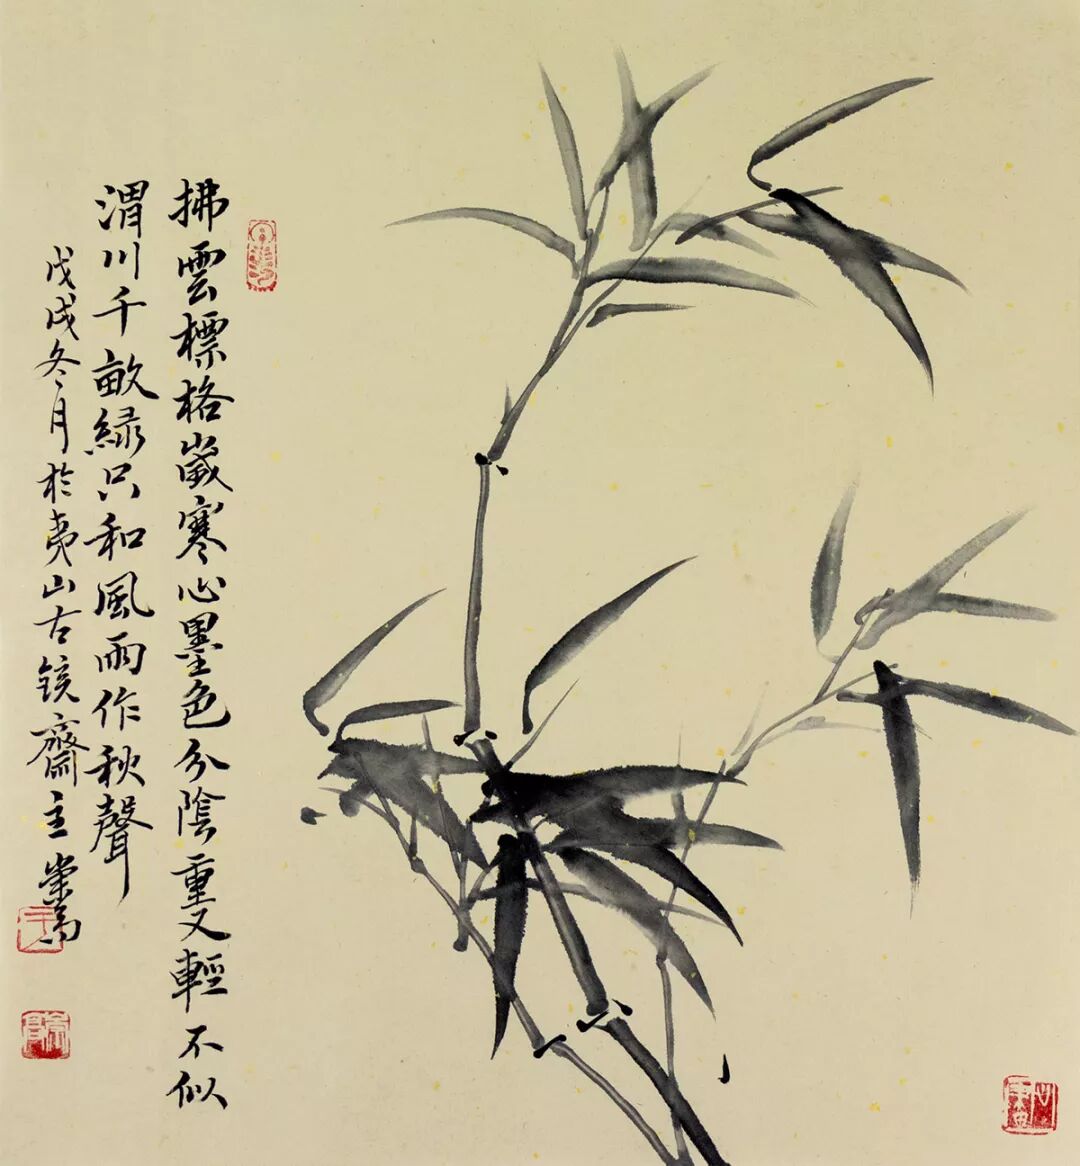 拂雲標格歲寒心墨色分陰重又輕不似
渭川千畝綠只和風雨作秋聲
戊戌冬月於夷山古齋主